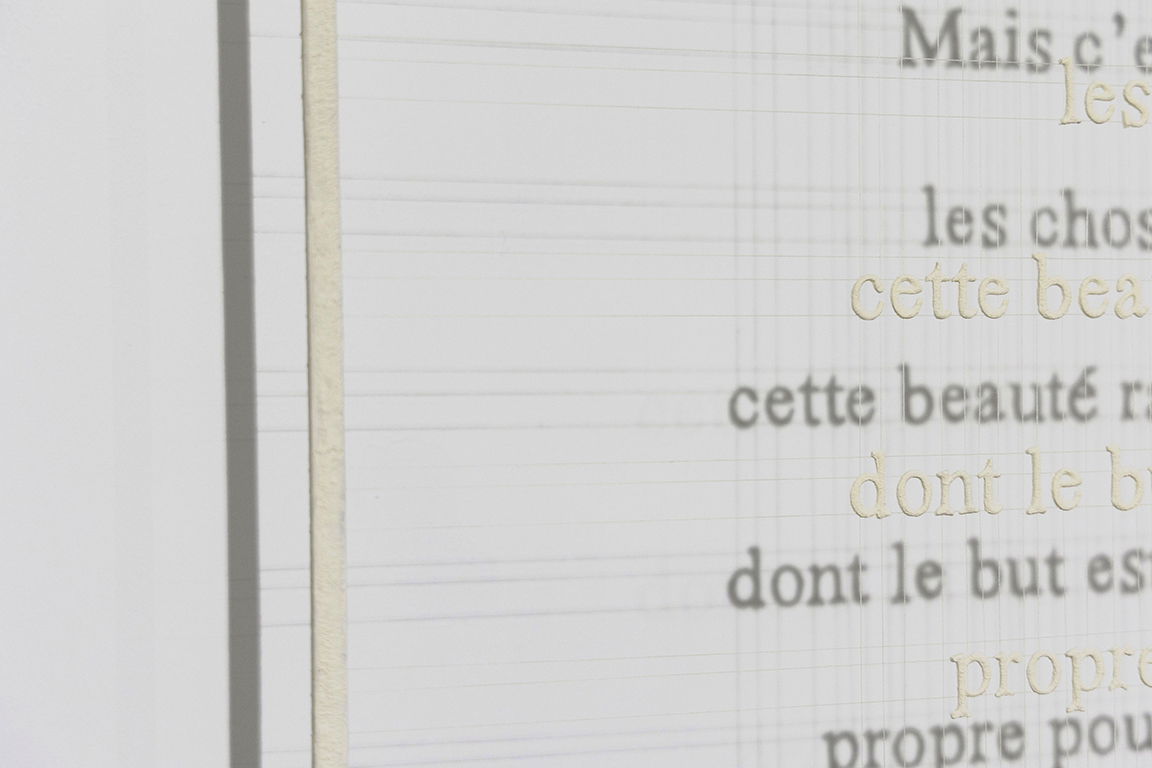 Mais c'e
les
les chos
cette bea
cette beauté ra
dont le bu
dont le but est
propre
propre pou